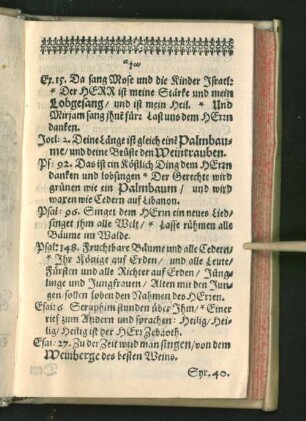 Ex. 15. Da sang Mose und die Kinder Israel:
* Der HERR ist meine Stärke und mein
Lobgesang / und ist mein Heil. * Und
Mirjam sang ihnẽ für: Last uns dem HErrn
danken.
2. Deine Länge ist gleich einẽ Palmbau-
me / und deine Brüste den Weintrauben.
Ps: 92. Das ist ein Köstlich Ding dem HErrn
danken und lobsingen * Der Gerechte wird
grünen wie ein Palmbaum / und wird
waxen wie Cedern auf Libanon.
Psal: 96. Singet dem HErrn ein neues Lied /
singet ihm alle Welt / * Lasse rühmen alle
Bäume im Walde.
Psal: 148. Fruchtbare Bäume und alle Cedern /
* Ihr Könige auf Erden / und alle Leute /
Fürsten und alle Richter auf Erden / Jüng-
linge und Jungfrauen / Alten mit den Jun-
gen sollen loben den Nahmen des HErren.
Esai: 6. Seraphim stunden über Ihm / * Einer
rief zum Andern und sprachen: Heilig / Hei-
lig / Heilig ist der HErr Zebaoth.
Esai: 27. Zu der Zeit wird man singen / von dem
Weinberge des besten Weins.
Syr. 40.